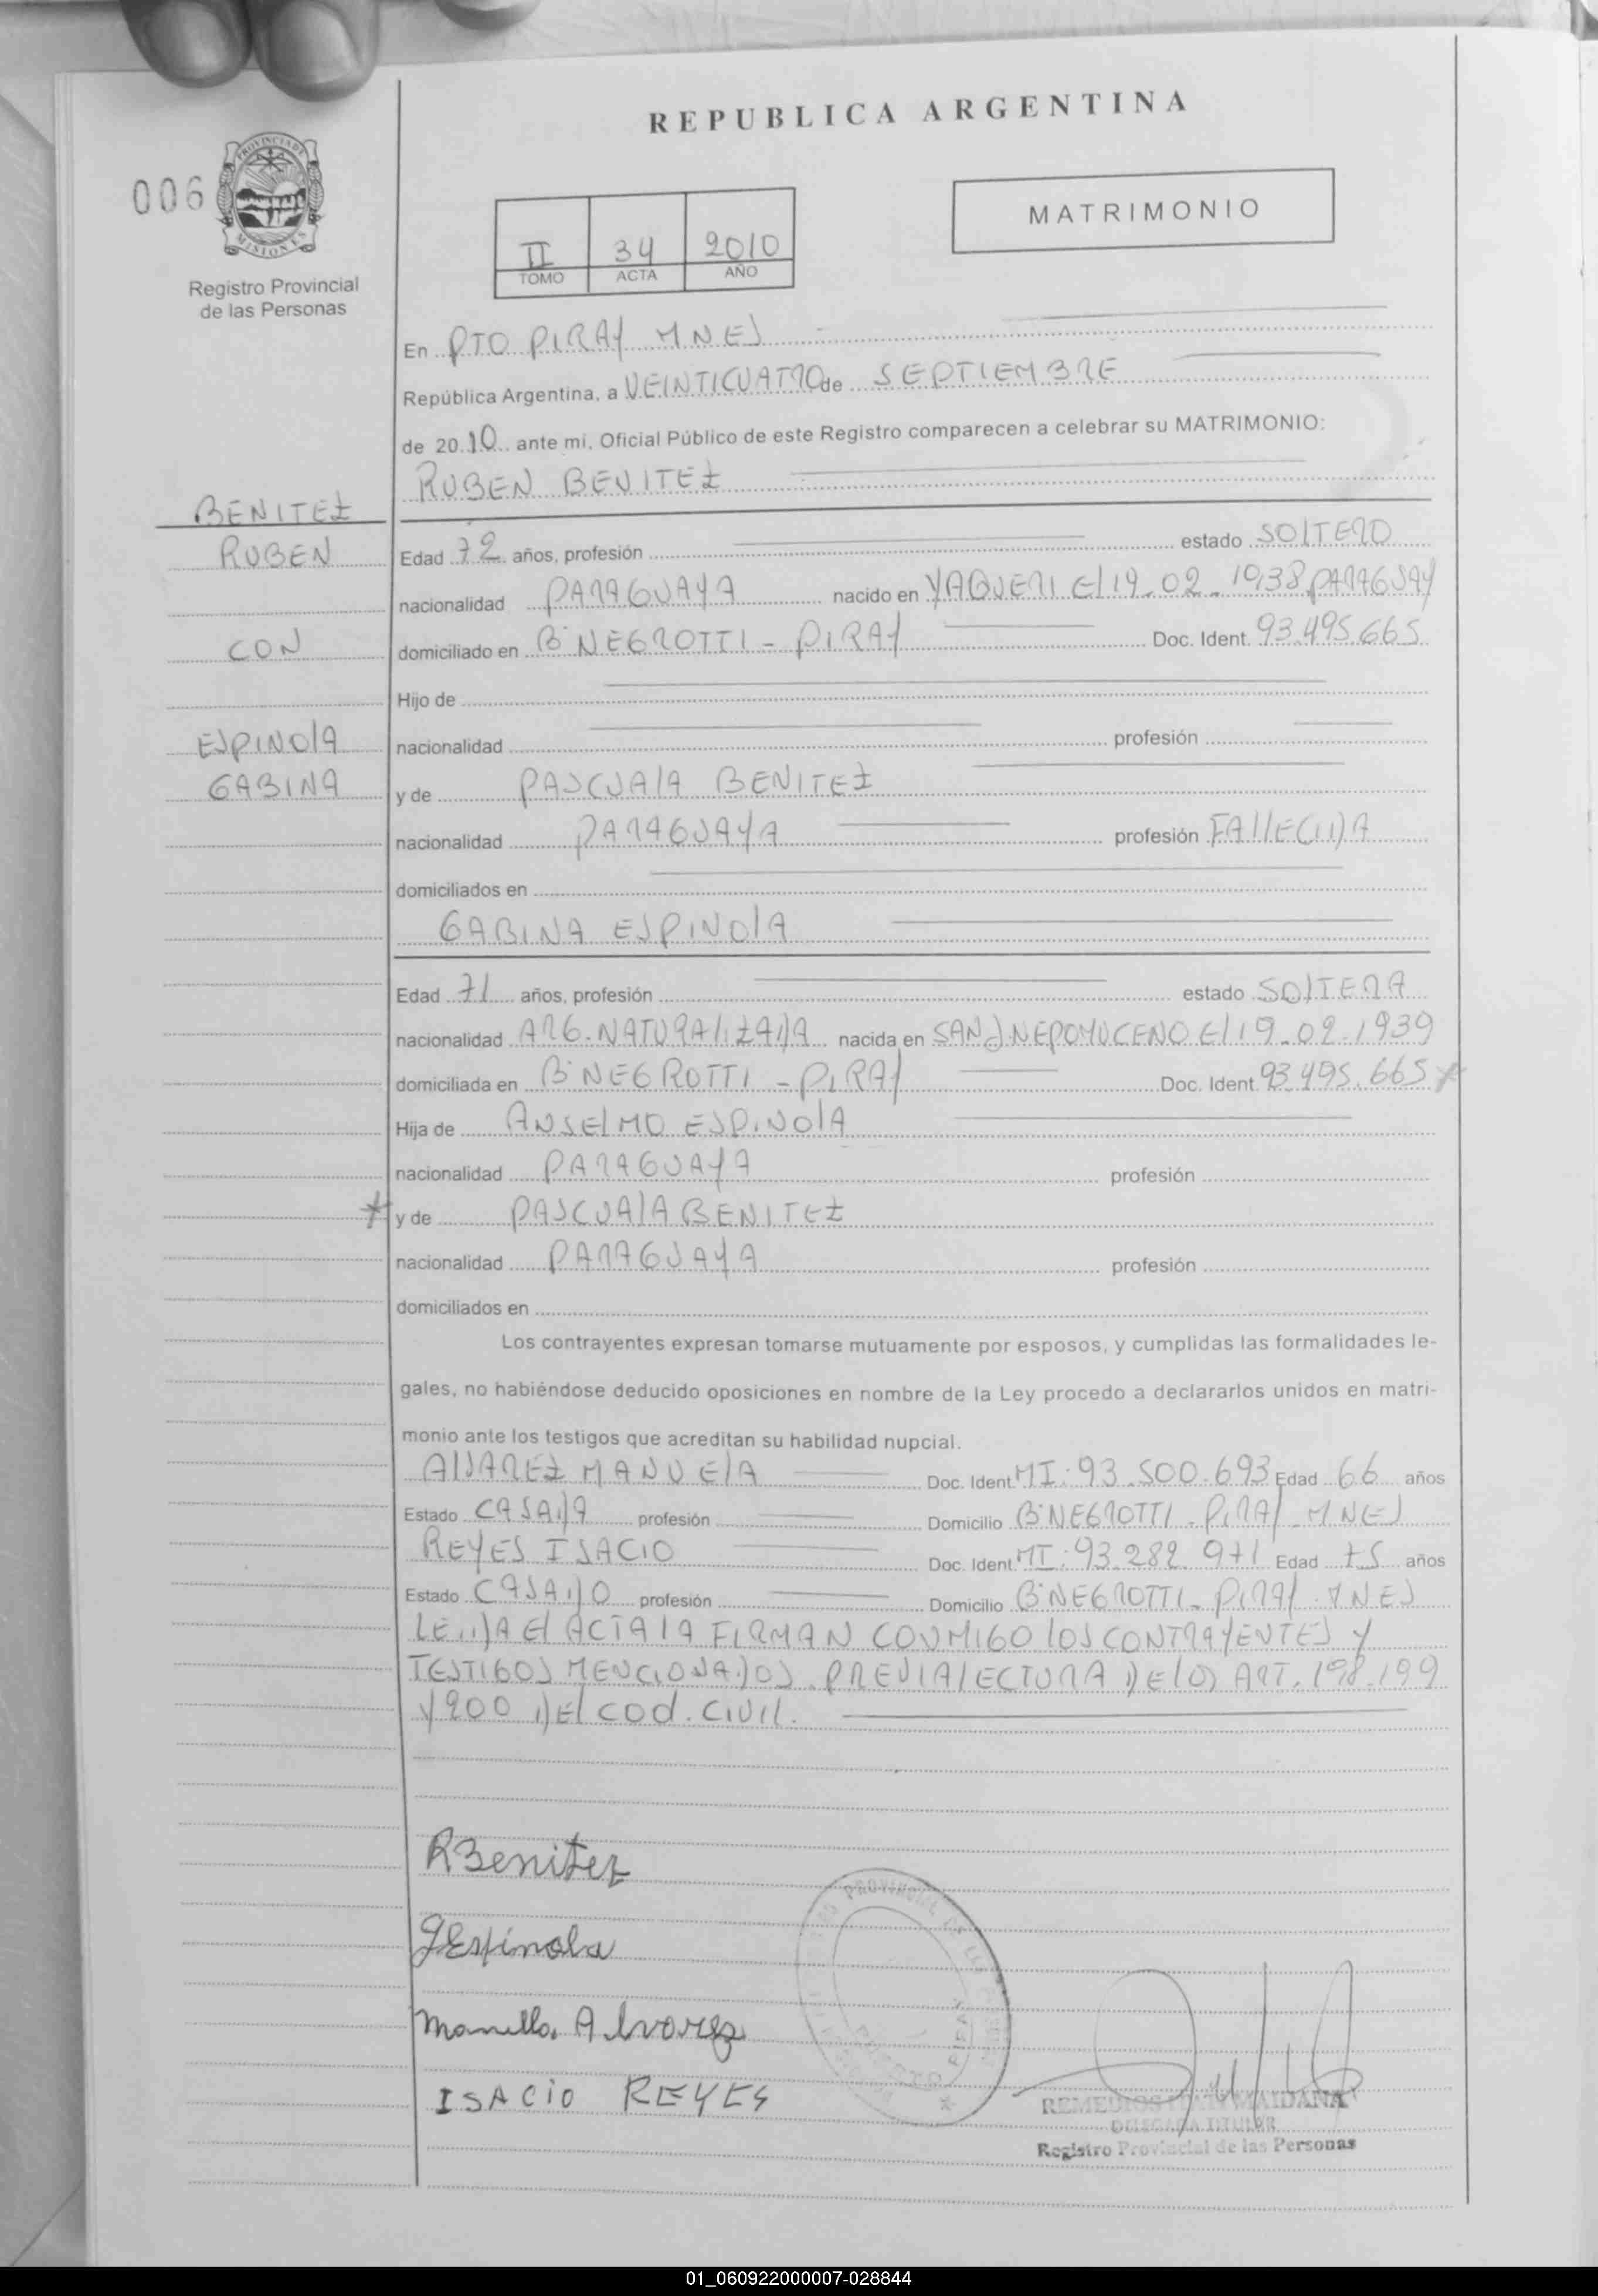 REPUBLICA ARGENTINA
006
PROVINCIA DE
MISIONES
Registro Provincial
de las Personas
MATRIMONIO
II 34 2010
TOMO ACTA AÑO
En PTO PIRAY MNES
República Argentina, a VEINTICUATRO de SEPTIEMBRE
de 2010 ante mi, Oficial Público de este Registro comparecen a celebrar su MATRIMONIO:
RUBEN BENITEZ
BENITEZ
RUBEN
CON
ESPINOLA
GABINA
Edad 72 años, profesión estado SOLTERO
nacionalidad PARAGUAYA nacido en YAQUERI El 19.02.1938 PARAGUAY
domiciliado en Bº NEGROTTI - PIRAY Doc. Ident. 93.495.665
Hijo de
nacionalidad profesión
y de PASCUALA BENITEZ
nacionalidad PARAGUAYA profesión FALLECIDA
domiciliados en
GABINA ESPINOLA
Edad 71 años, profesión estado SOLTERA
nacionalidad ARG. NATURALIZADA nacida en SAN J. NEPOMUCENO El 19.02.1939
domiciliada en Bº NEGROTTI - PIRAY Doc. Ident. 93.495.665 *
Hija de ANSELMO ESPINOLA
nacionalidad PARAGUAYA profesión
* y de PASCUALA BENITEZ
nacionalidad PARAGUAYA profesión
domiciliados en
Los contrayentes expresan tomarse mutuamente por esposos, y cumplidas las formalidades le-
gales, no habiéndose deducido oposiciones en nombre de la Ley procedo a declararlos unidos en matri-
monio ante los testigos que acreditan su habilidad nupcial.
ALVAREZ MANUELA Doc. Ident. MI: 93.500.693 Edad 66 años
Estado CASADA profesión Domicilio Bº NEGROTTI - PIRAY - MNES
REYES ISACIO Doc. Ident. MI: 93.282.971 Edad 75 años
Estado CASADO profesión Domicilio Bº NEGROTTI - PIRAY MNES
LEIDA El ACTA LA FIRMAN CONMIGO LOS CONTRAYENTES Y
TESTIGOS MENCIONADOS. PREVIA LECTURA DE LOS ART. 198.199
Y 200 DEL COD. CIVIL.
RBenitez
GEspinola
Manuela Alvarez
ISACIO REYES
PROVINCIAL DE LAS
REMEDIOS MAIDANA
DELEGADA TITULAR
Registro Provincial de las Personas
01_060922000007-028844